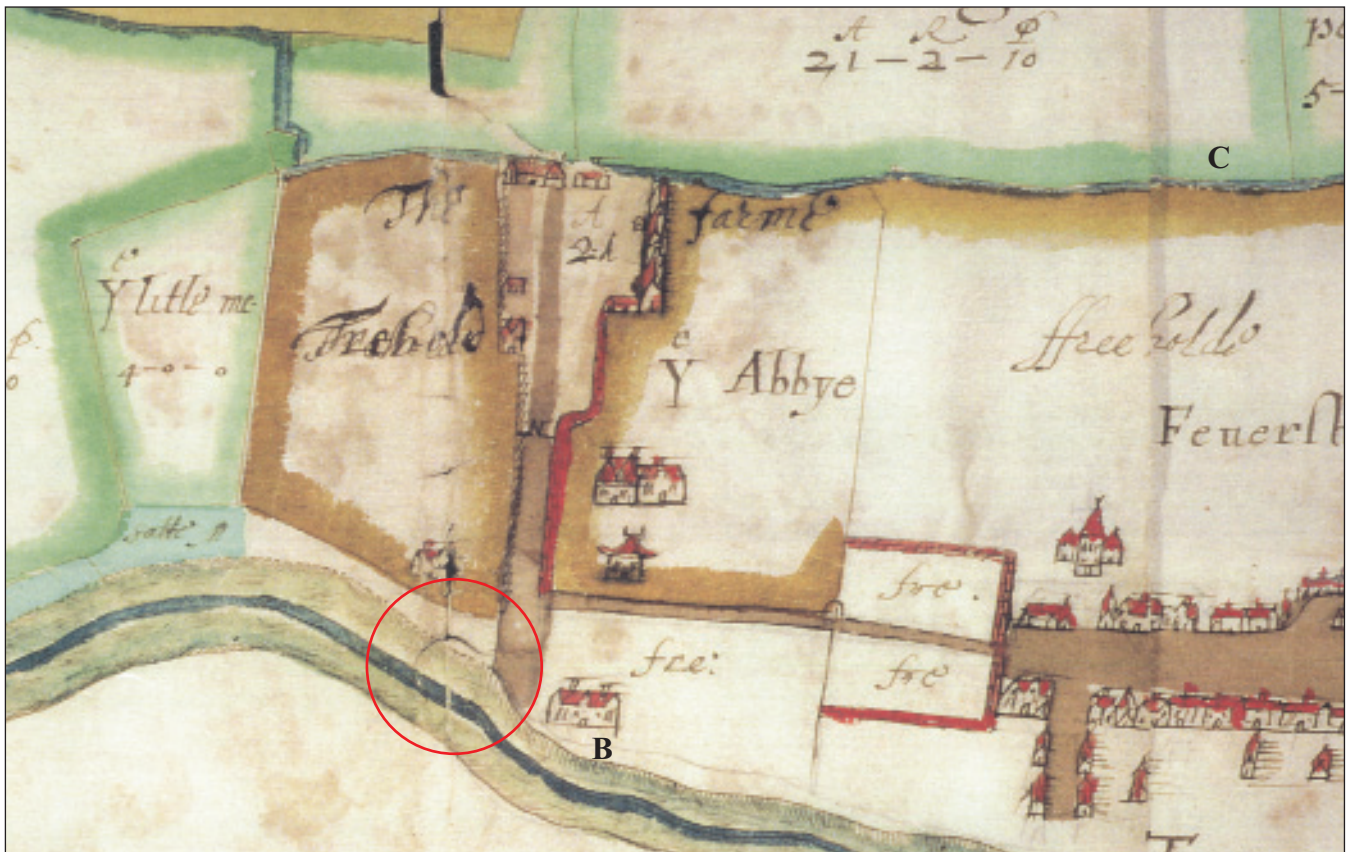 A R P
21 – 2 – 10
5-
C
The
farme
A
e
Y litle me-
4-0-0
Freehold
e
Y Abbye
ffree holde
Feuerst
salte
fre .
fre:
fre
B
T